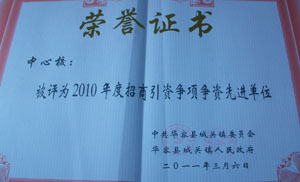 荣誉证书
中心校：
被评为2010年度招商引资争项争资先进单位
中共华容县城关镇委员会
华容县城关镇人民政府
二〇一一年三月六日